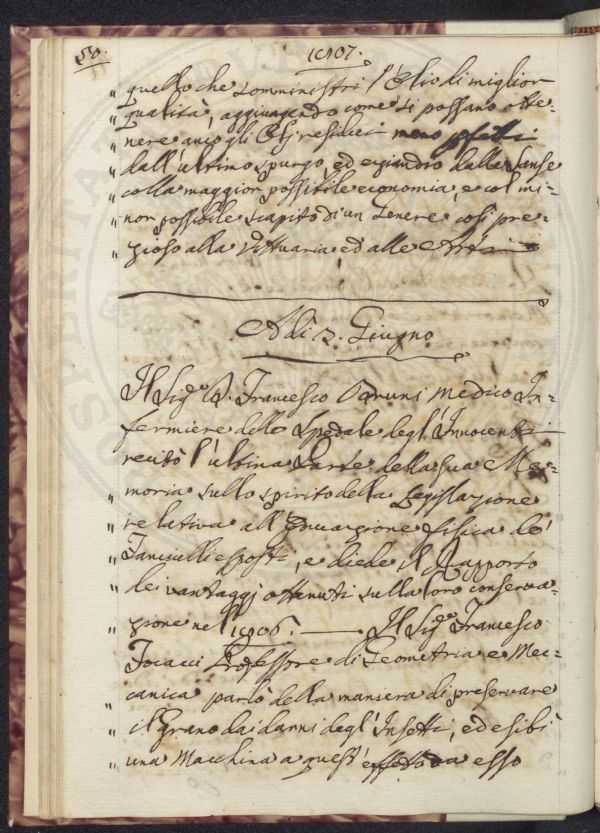 50.
1807.
„ quello che somministri l'Olio di miglior
„ qualità, aggiungendo come si possano otte-
„ nere anco gli Olj residui meno perfetti
„ dall'ultimo spurgo, ed eziandio dalle Sanse
„ colla maggior possibile economia, e col mi-
„ nor possibile scapito di un Genere così pre-
„ zioso alla Vittuaria ed alle Arti
A dì 3. Giugno
Il Sig.e D. Francesco Bruni Medico In-
fermiere dello Spedale degl'Innocenti
„ recitò l'ultima Parte della sua Me-
„ moria sullo spirito della Legislazione
„ relativa all'Educazione fisica de'
„ Fanciulli esposti, e diede il Rapporto
„ dei vantaggj ottenuti sulla loro conserva-
„ zione nel 1806. — Il Sig.e Francesco
Focacci Professore di Geometria e Mec-
„ canica parlò della maniera di preservare
„ il Grano dai danni degl'Insetti, ed esibì
„ una Macchina a quest'effetto da esso